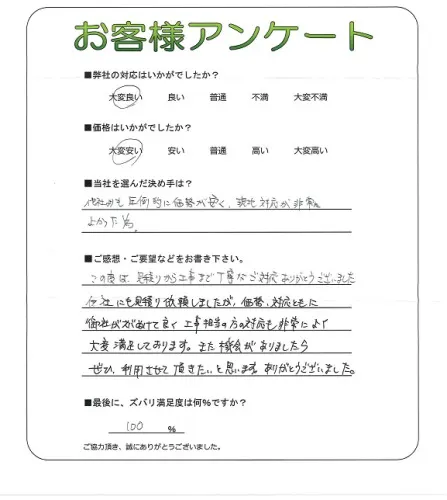 お客様アンケート
■弊社の対応はいかがでしたか？
大変良い 良い 普通 不満 大変不満
■価格はいかがでしたか？
大変安い 安い 普通 高い 大変高い
■当社を選んだ決め手は？
他社よりも圧倒的に価格が安く、対応が非常に
よかった為。
■ご感想・ご要望などをお書き下さい。
この度は、見積りから工事まで丁寧なご対応ありがとうございました
他社にも見積り依頼しましたが、価格、対応ともに
御社がずばぬけて良く工事担当の方の対応も非常によく
大変満足しております。また機会がありましたら
ぜひ、利用させて頂きたいと思います。ありがとうございました。
■最後に、ズバリ満足度は何%ですか？
100 %
ご協力頂き、誠にありがとうございました。